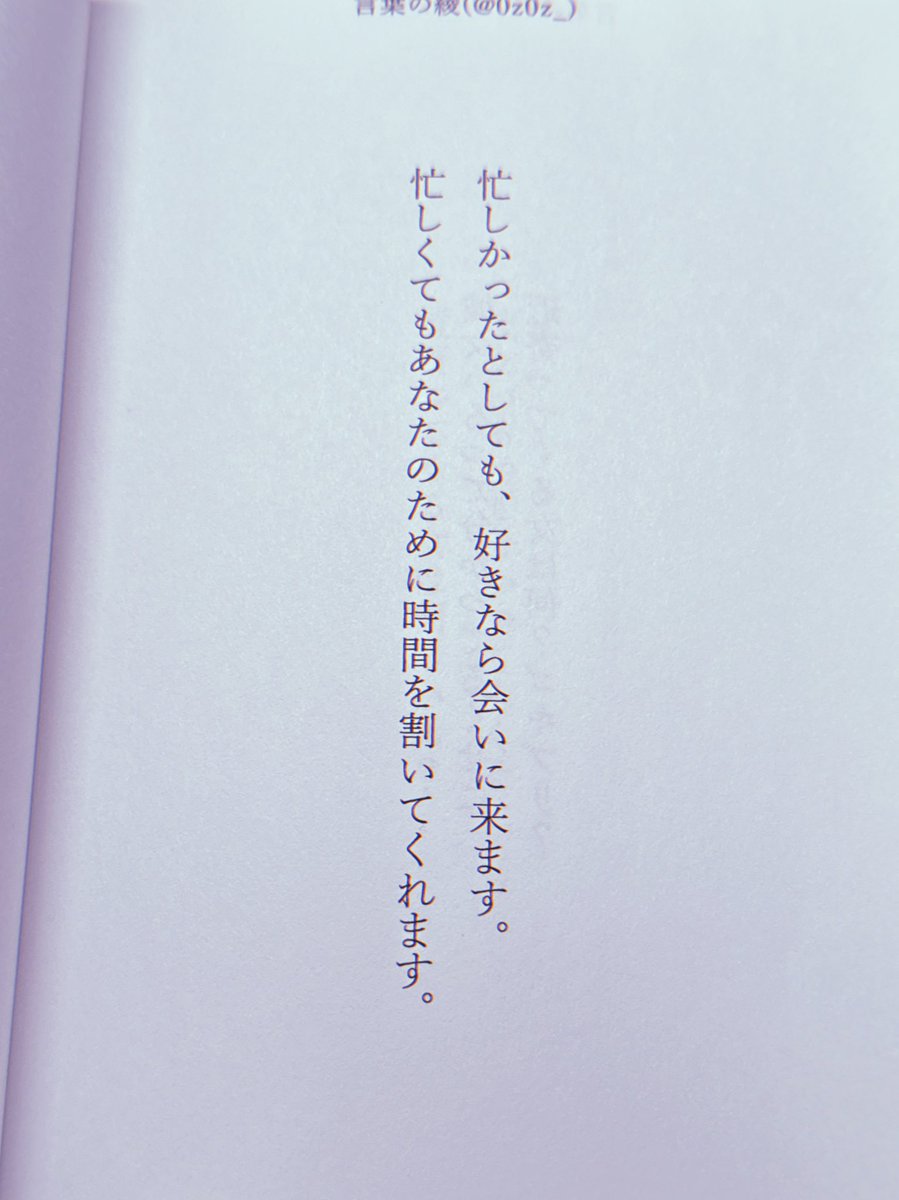 言葉の綾(@0z0z_)
忙しかったとしても、好きなら会いに来ます。
忙しくてもあなたのために時間を割いてくれます。